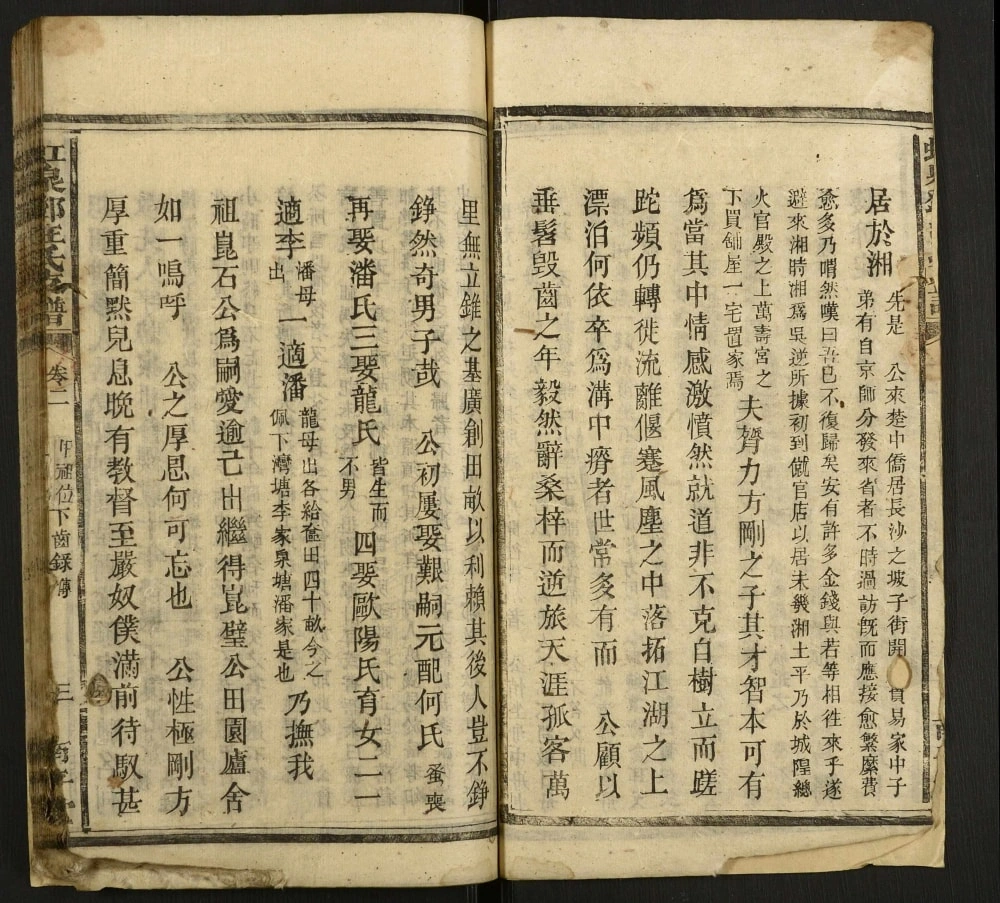 居於湘
先是　公來楚中僑居長沙之坡子街開　貿易家中子
弟有自京師分發來省者不時過訪旣而應接愈繁縻費
愈多乃喟然嘆曰吾已不復歸矣安有許多金錢與若等相徃來乎遂
避來湘時湘爲吳逆所據初到僦官店以居未幾湘土平乃於城隍總
火官殿之上萬壽宮之
下買舖屋一宅置家焉
夫膂力方剛之子其才智本可有
爲當其中情感激憤然就道非不克自樹立而蹉
跎頻仍轉徙流離偃蹇風塵之中落拓江湖之上
漂泊何依卒爲溝中瘠者世常多有而　公顧以
垂髫毀齒之年毅然辭桑梓而逆旅天涯孤客萬
里無立錐之基廣創田畝以利賴其後人豈不錚
錚然奇男子㢤　公初屢娶艱嗣元配何氏蚤喪
再娶潘氏三娶龍氏
皆生而
不男
四娶歐陽氏育女二一
適李
潘母
出
一適潘
龍母出各給奩田四十畝今之
佩下灣塘李家泉塘潘家是也
乃撫我
祖崑石公爲嗣愛逾己出繼得崑璧公田園廬舍
如一嗚呼　公之厚恩何可忘也　公性極剛方
厚重簡黙兒息晚有教督至嚴奴僕滿前待馭甚
卷二
位下齒錄傳
三